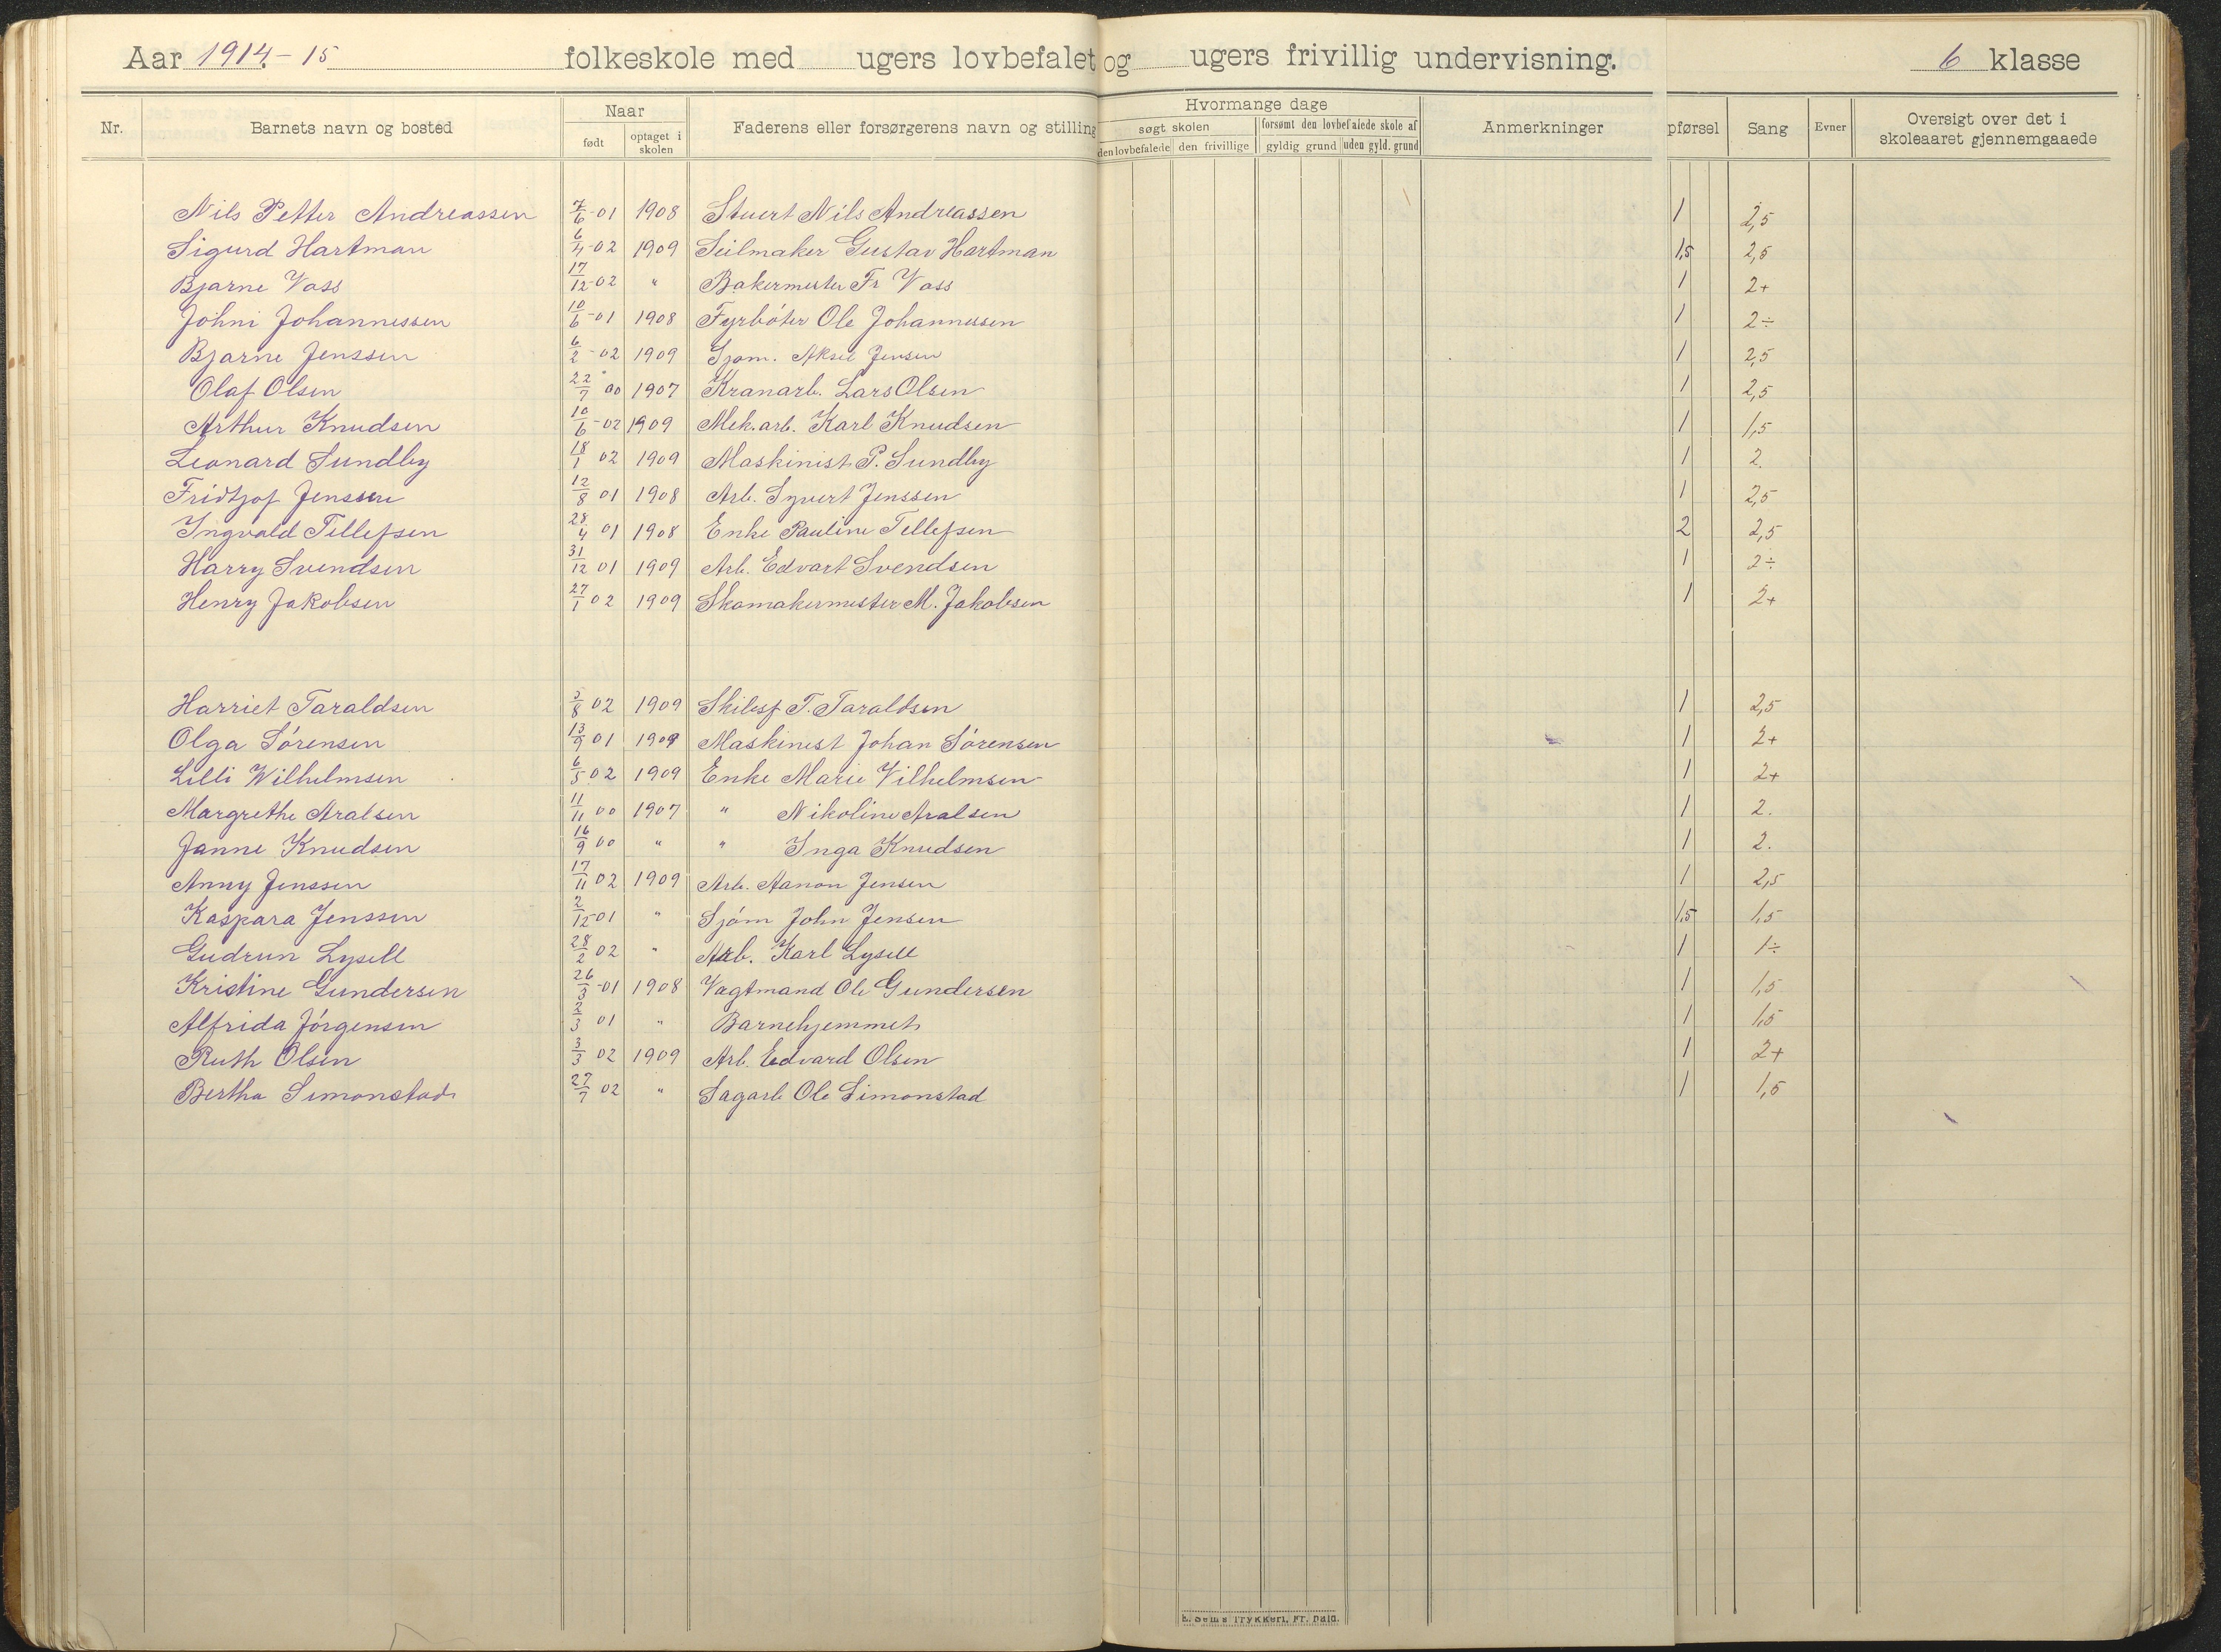 Aar 1914.-15 folkeskole med ugers lovbefalet og ugers frivillig undervisning. 6 klasse
Nr. Barnets navn og bosted Naar født optaget i skolen Faderens eller forsørgerens navn og stilling Hvormange dage søgt skolen den lovbefalede den frivillige forsømt den lovbefalede skole af gyldig grund uden gyld. grund Anmerkninger pførsel Sang Evner Oversigt over det i skoleaaret gjennemgaaede
Nils Petter Andreassen 7/6-01 1908 Stuert Nils Andreassen 1 2,5
Sigurd Hartman 6/4-02 1909 Seilmaker Gustav Hartman 1,5 2,5
Bjarne Vass 17/12-02 " Bakermester Fr Vass 1 2+
Johni Johannessen 10/6-01 1908 Fyrbøter Ole Johannessen 1 2÷
Bjarne Jenssen 6/2-02 1909 Sjøm. Aksel Jensen 1 2,5
Olaf Olsen 22/7 00 1907 Kranarb. Lars Olsen 1 2,5
Arthur Knudsen 10/6-02 1909 Mek.arb. Karl Knudsen 1 1,5
Leonard Sundby 18/1 02 1909 Maskinist P. Sundby 1 2.
Fridtjof Jenssen 12/8 01 1908 Arb. Syvert Jenssen 1 2,5
Ingvald Tellefsen 28/4 01 1908 Enke Pauline Tellefsen 2 2,5
Harry Svendsen 31/12 01 1909 Arb. Edvart Svendsen 1 2÷
Henry Jakobsen 27/1 02 1909 Skomakermester M. Jakobsen 1 2+
Harriet Taraldsen 5/8 02 1909 T. Taraldsen 1 2,5
Olga Sørensen 13/9 01 1909 Maskinist Johan Sørensen 1 2+
Lilli Wilhelmsen 6/5 02 1909 Enke Marie Vilhelmsen 1 2+
Margrethe Aralsen 11/11 00 1907 " Nikoline Aralsen 1 2.
Janne Knudsen 16/9 00 " " Inga Knudsen 1 2.
Anny Jenssen 17/11 02 1909 Arb. Aanon Jensen 1 2,5
Kaspara Jenssen 2/12 01 " Sjøm John Jensen 1,5 1,5
Gudrun Lysell 28/2 02 " Arb. Karl Lysell 1 1÷
Kristine Gundersen 26/3-01 1908 Vagtmand Ole Gundersen 1 1,5
Alfrida Jørgensen 2/3 01 " Barnehjemmet 1 1,5
Ruth Olsen 3/3 02 1909 Arb. Edvard Olsen 1 2+
Bertha Simonstad 27/7 02 " Sagarb Ole Simonstad 1 1,5